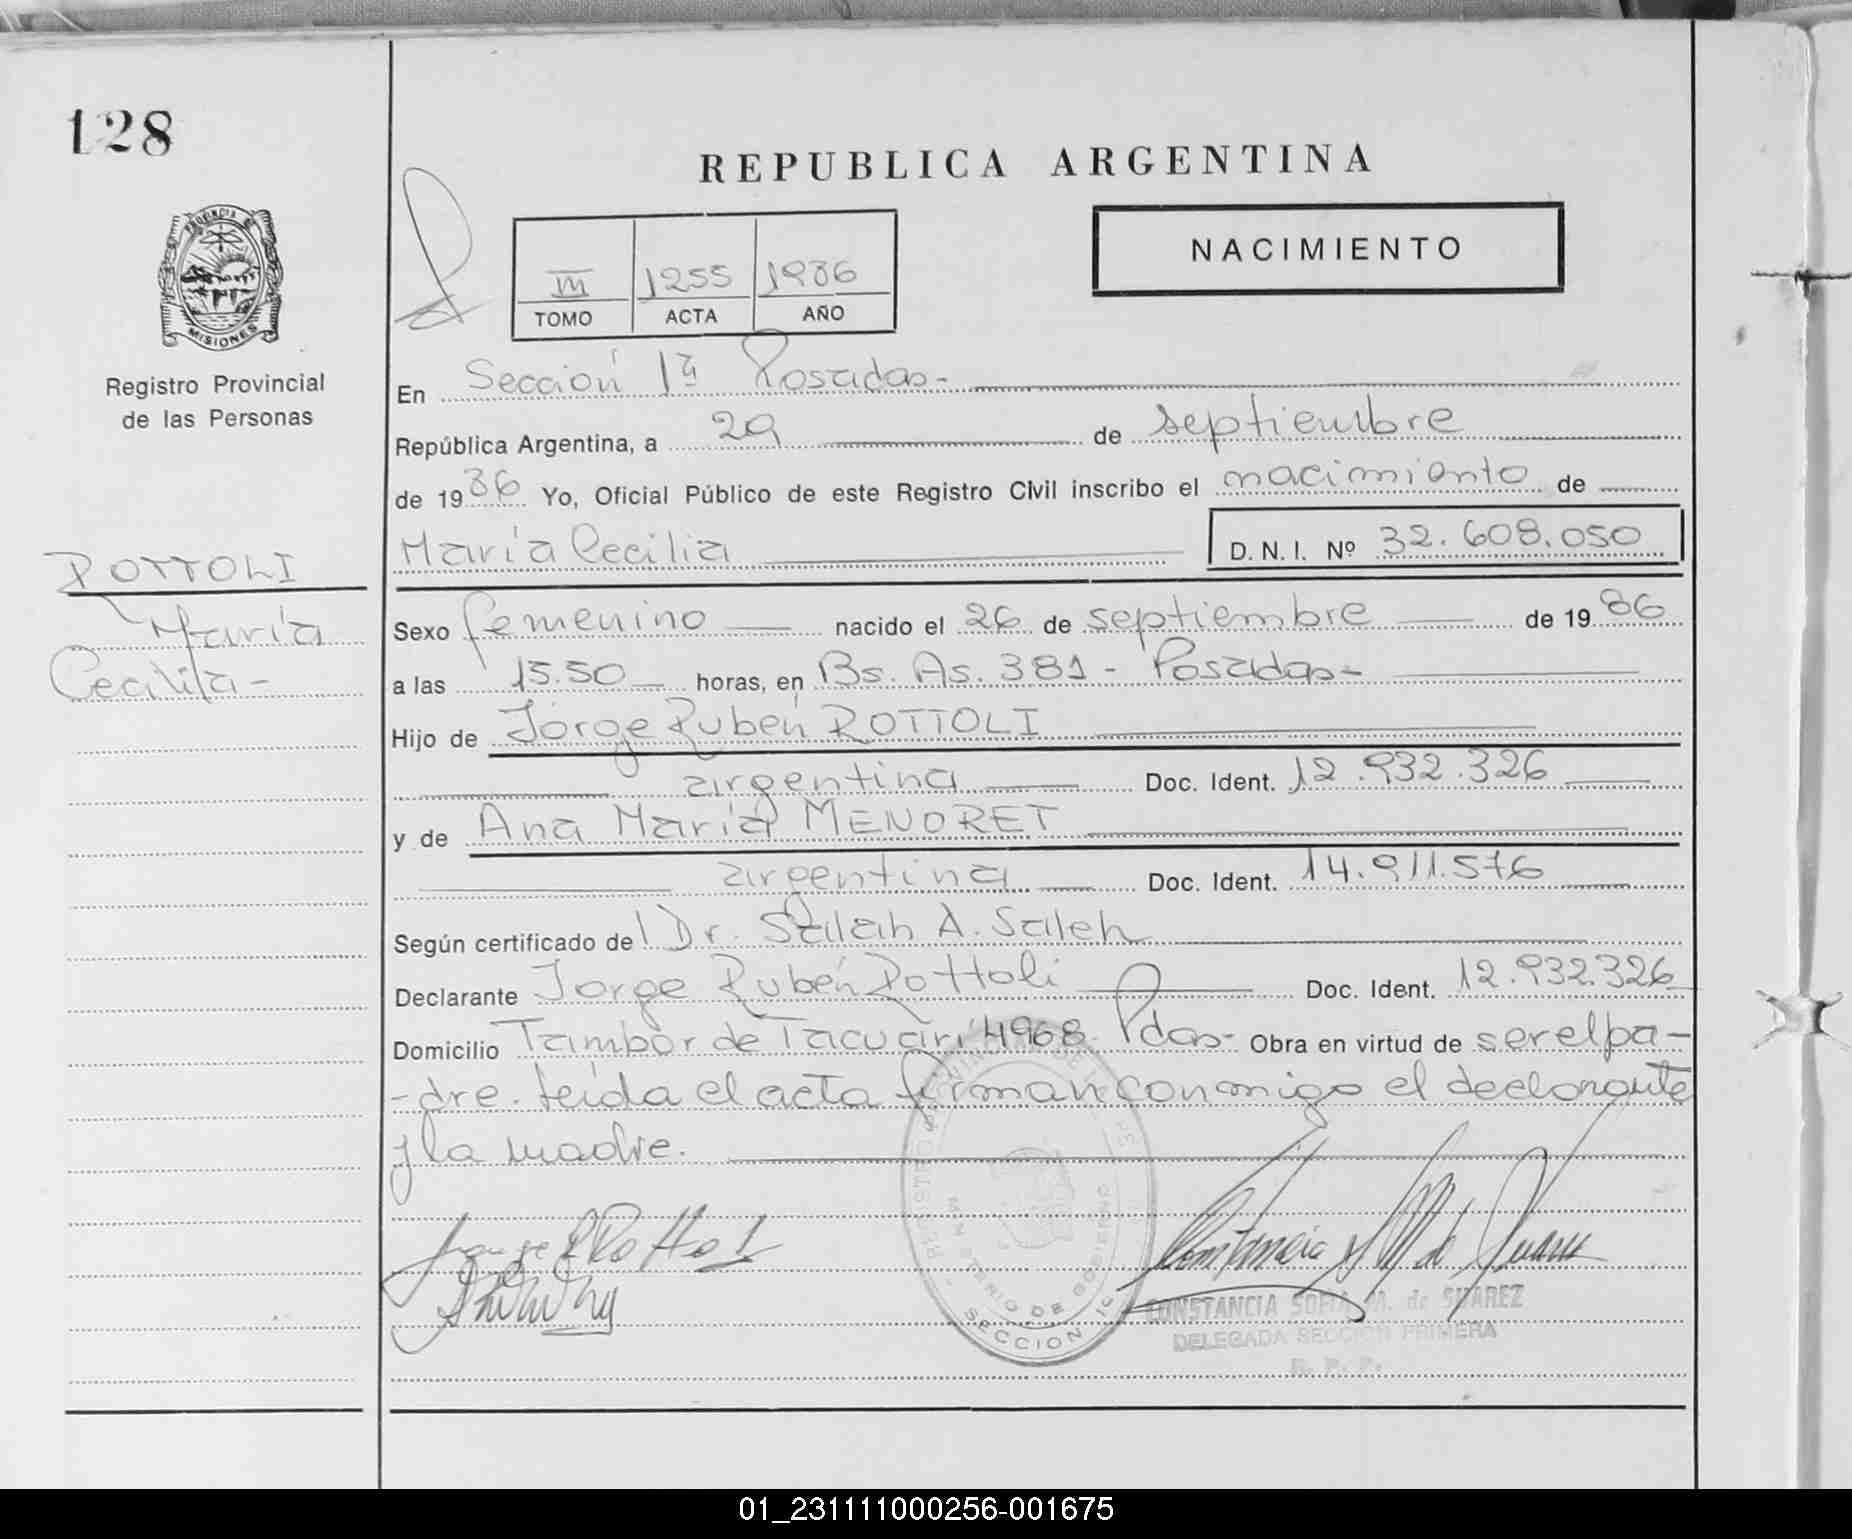 128
REPUBLICA ARGENTINA
NACIMIENTO
III 1255 1986
TOMO ACTA AÑO
PROVINCIA DE MISIONES
Registro Provincial
de las Personas
En Sección 1ª Posadas-
República Argentina, a 29 de septiembre
de 1986 Yo, Oficial Público de este Registro Civil inscribo el nacimiento de
María Cecilia D.N.I. Nº 32.608.050
ROTTOLI
María
Cecilia-
Sexo femenino nacido el 26 de septiembre de 1986
a las 15.50 horas, en Bs. As. 381 - Posadas-
Hijo de Jorge Rubén ROTTOLI
argentina Doc. Ident. 12.932.326
y de Ana María MENORET
argentina Doc. Ident. 14.911.576
Según certificado de Dr. Salah A. Saleh
Declarante Jorge Rubén Rottoli Doc. Ident. 12.932.326
Domicilio Tambor de Tacuarí 4968 Pdas- Obra en virtud de ser el pa-
-dre. Leída el acta firman conmigo el declarante
y la madre.
REGISTRO PROVINCIAL DE
MINISTERIO DE GOBIERNO
SECCION
CONSTANCIA SOFIA M. de SUAREZ
DELEGADA SECCION PRIMERA
R. P. P.
01_231111000256-001675